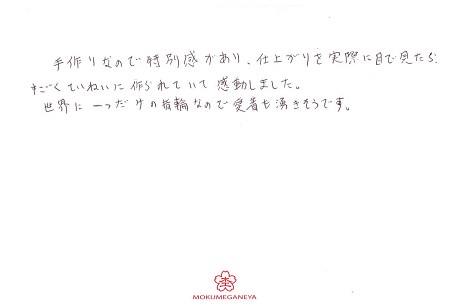 手作りなので特別感があり、仕上がりを実際に目で見たら
すごくていねいに作られていて感動しました。
世界に一つだけの指輪なので愛着も湧きそうです。
MOKUMEGANEYA